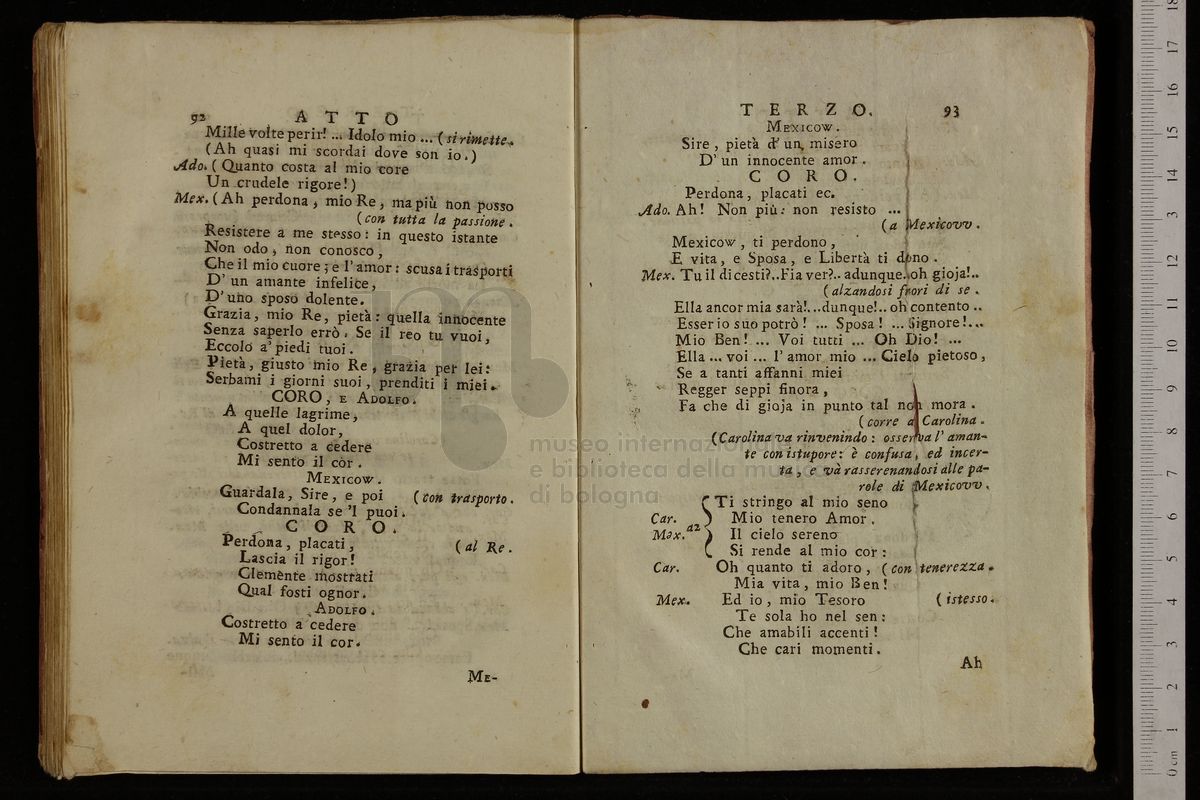 92 ATTO
Mille volte perir! ... Idolo mio ... (si rimette.
(Ah quasi mi scordai dove son io.)
Ado. (Quanto costa al mio core
Un crudele rigore!)
Mex. (Ah perdona, mio Re, ma più non posso
(con tutta la passione.
Resistere a me stesso: in questo istante
Non odo, non conosco,
Che il mio cuore, e l'amor: scusa i trasporti
D'un amante infelice,
D'uno sposo dolente.
Grazia, mio Re, pietà: quella innocente
Senza saperlo errò. Se il reo tu vuoi,
Eccolo a' piedi tuoi.
Pietà, giusto mio Re, grazia per lei:
Serbami i giorni suoi, prenditi i miei.
CORO, E ADOLFO.
A quelle lagrime,
A quel dolor,
Costretto a cedere
Mi sento il cor.
MEXICOW.
Guardala, Sire, e poi (con trasporto.
Condannala se 'l puoi.
CORO.
Perdona, placati, (al Re.
Lascia il rigor!
Clemente mostrati
Qual fosti ognor.
ADOLFO.
Costretto a cedere
Mi sento il cor.
ME-
TERZO. 93
MEXICOW.
Sire, pietà d'un misero
D'un innocente amor.
CORO.
Perdona, placati ec.
Ado. Ah! Non più: non resisto ...
(a Mexicovv.
Mexicow, ti perdono,
E vita, e Sposa, e Libertà ti dono.
Mex. Tu il dicesti?.. Fia ver?.. adunque.. oh gioja!..
(alzandosi fuori di se.
Ella ancor mia sarà!...dunque!.. oh contento ..
Esser io suo potrò! ... Sposa! ... Signore!...
Mio Ben! ... Voi tutti ... Oh Dio! ...
Ella ... voi ... l'amor mio ... Cielo pietoso,
Se a tanti affanni miei
Regger seppi finora,
Fa che di gioja in punto tal non mora.
(corre a Carolina.
(Carolina va rinvenindo: osserva l'aman-
te con istupore: è confusa, ed incer-
ta, e và rasserenandosi alle pa-
role di Mexicovv.
Ti stringo al mio seno
Car. Mio tenero Amor.
Mex. a2 Il cielo sereno
Si rende al mio cor:
Car. Oh quanto ti adoro, (con tenerezza.
Mia vita, mio Ben!
Mex. Ed io, mio Tesoro (istesso.
Te sola ho nel sen:
Che amabili accenti!
Che cari momenti.
Ah
museo internazionale
e biblioteca della musica
di bologna
0 cm 1 2 3 4 5 6 7 8 9 10 11 12 13 14 15 16 17 18